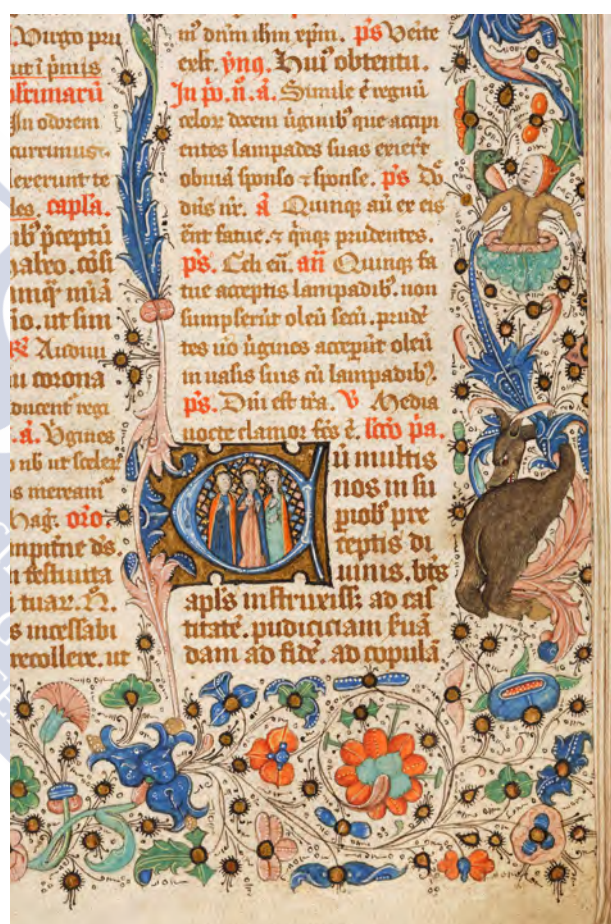 . Virgo pru
ut i pmis
In odorem
currimus
lexerunt te
les. capla.
ib' pceptū
io. ut sim
Audiui
u corona
ducent regi
.a. Vgines
s mereani
hag. oro.
mpitne ds.
tuar. N.
s incessabi
recollere. ut
m' dnm ihm xpm. ps Veīte
exlt. ymq. Hui' obtentu.
In po. n. a. Simile ē regnū
celor decem uginib' que accipi
entes lampades suas exierūt
obuiā sponso ⁊ sponse. ps Dō
dns nr. a Quinqꝫ aū ex eis
ērt fatue. ⁊ qnqꝫ prudentes.
ps. Celi en. añ Quinqꝫ fa
tue acceptis lampadib'. non
sumpserūt oleū secū. prudē
tes uo ugines accepūt oleū
in uasis suis cū lampadib'.
ps. Dni est tra. V Media
nocte clamor fcs ē. lcō pa.
Cū multis
nos in su
piob' pre
ceptis di
uinis. bts
apls instruxiss; ad cas
titatē. pudiciciam suā
dam ad fidē. ad copulā